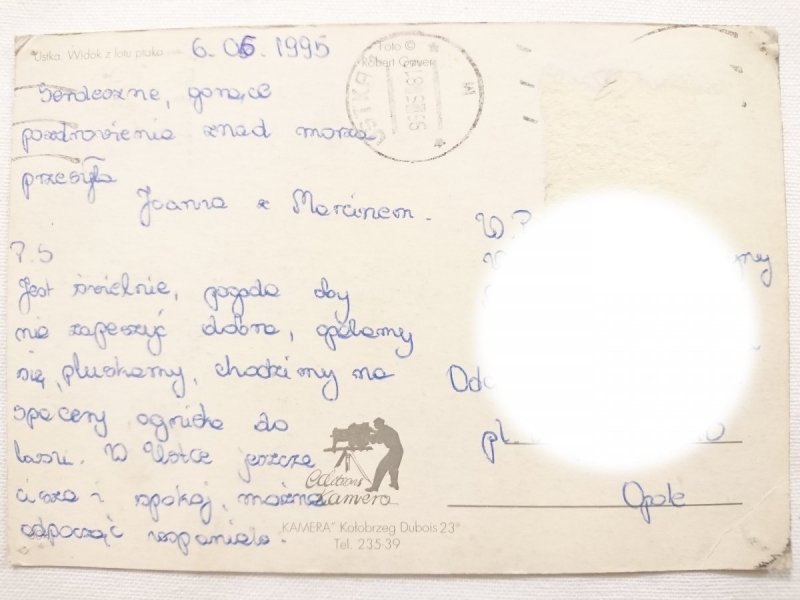 Ustka. Widok z lotu ptaka
6.06.1995
Foto ©
Robert
USTKA
Serdeczne, gorące
pozdrowienia znad morza
przesyła
Joanna z Marcinem.
P.S
Jest świetnie, pogoda aby
nie zapeszyć dobra, opalamy
się, pluskamy, chodzimy na
spacery ogniska do
lasu. W Ustce jeszcze
cisza i spokój, można
odpocząć wspaniale.
W.P.
Opole
Editions
Kamera
„KAMERA" Kołobrzeg Dubois 23
Tel. 235-39